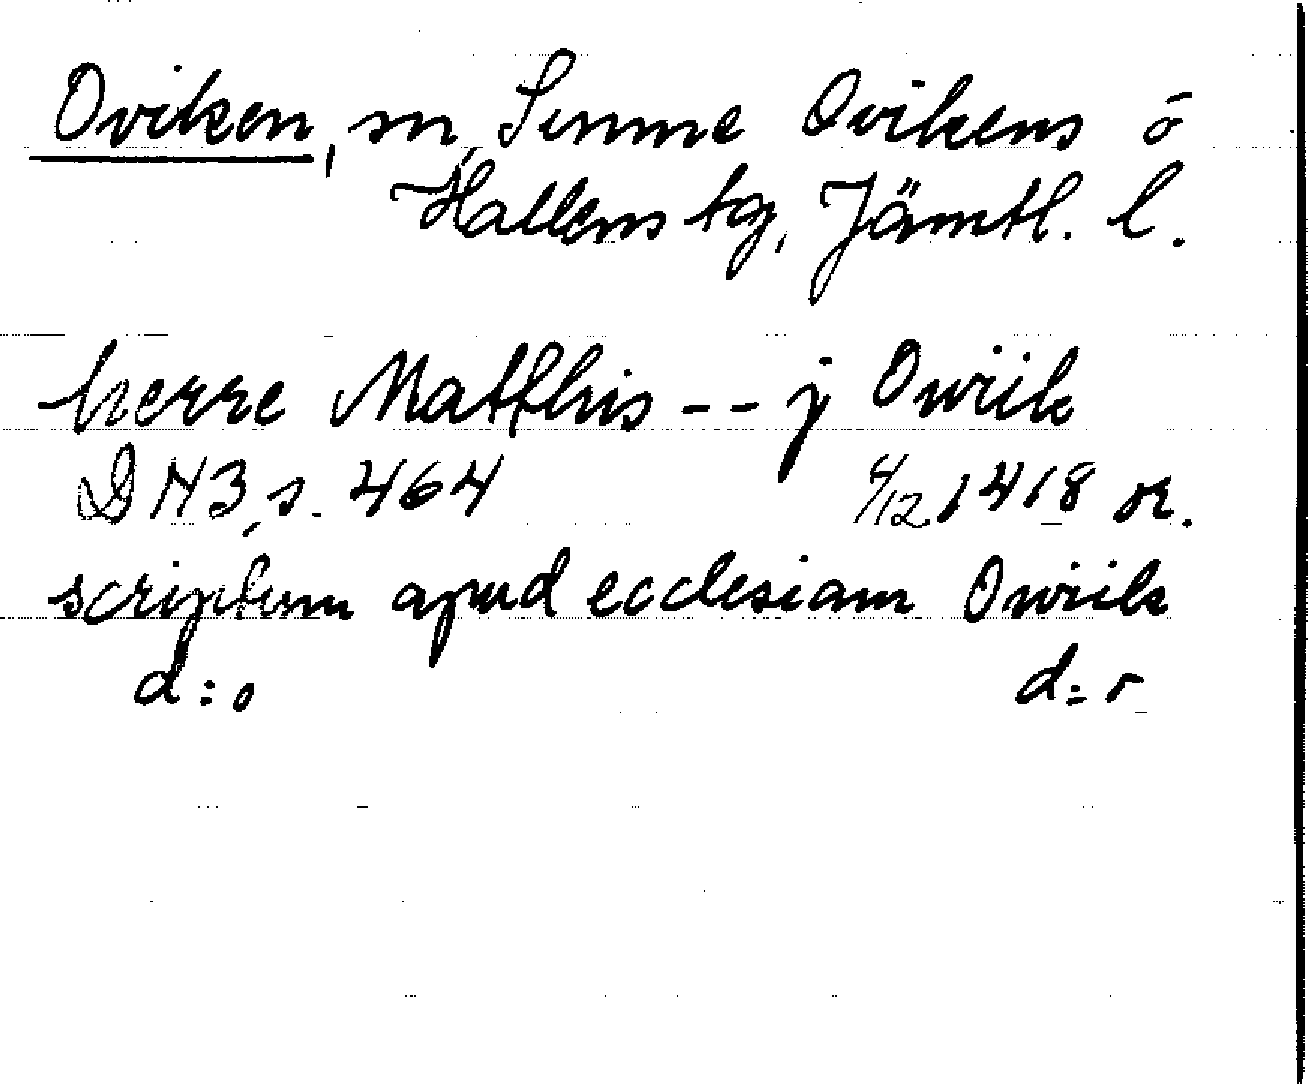 Oviken, sn, Sunne Ovikens o
Hallens tg, Jämtl. l.
herre Matthis -- j Owiik
DN 3, s. 464 4/12 1418 or.
scriptum apud ecclesiam Owiik
d:o d:o